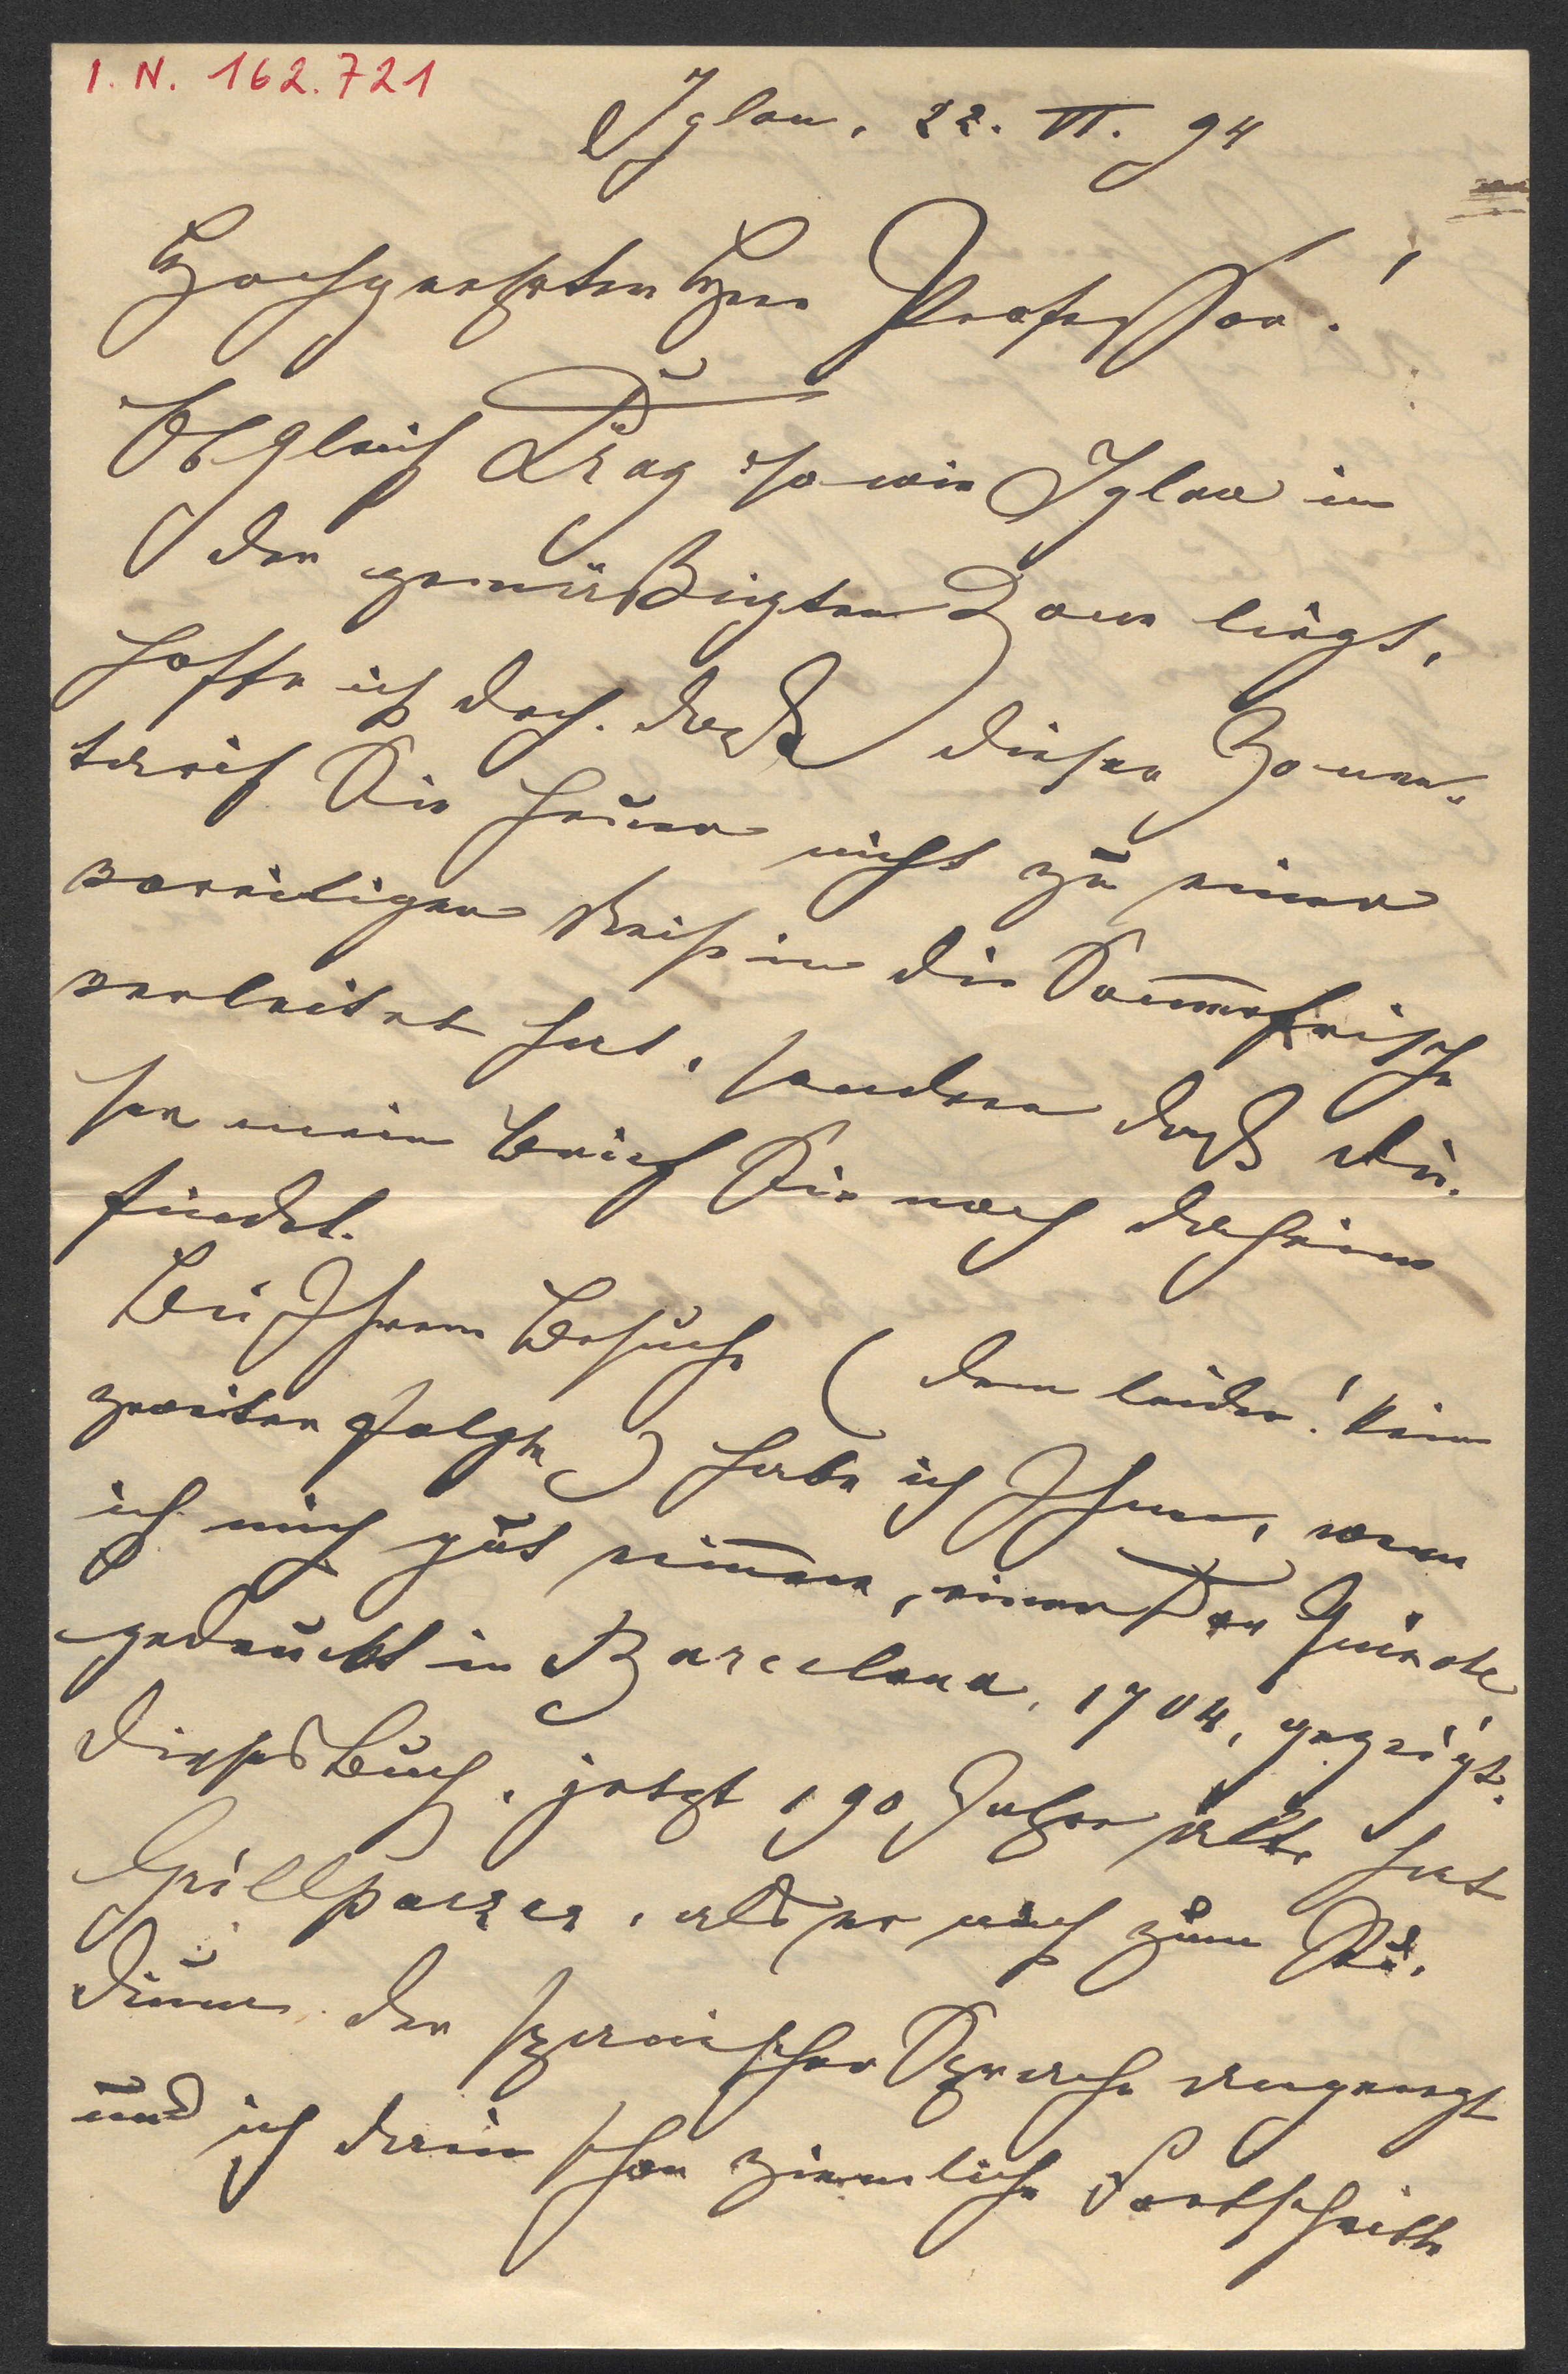 I. N. 162.721
Iglau, 22. VI. 94
Hochgeehrter Herr Professor!
Obgleich Prag so wie Iglau in
der gemäßigten Zone liegt,
hoffe ich doch, daß dieser Zonen-
tarif Sie heuer nicht zu einer
voreiligen Reise in die Sommerfrische
verleitet hat, sondern daß die-
ser mein Brief Sie noch daheim
findet.
Bei Ihrem Besuche (dem leider! kein
zweiter folgte) habe ich Ihnen, wenn
ich mich gut erinnere, einen Don Quixote
gedruckt in Barcelona, 1704, gezeigt.
Dieses Buch, jetzt 190 Jahre alt, hat
Grillparzer, als er mich zum Stu-
dium der spanischen Sprache angeregt
und ich darin schon ziemliche Fortschritte